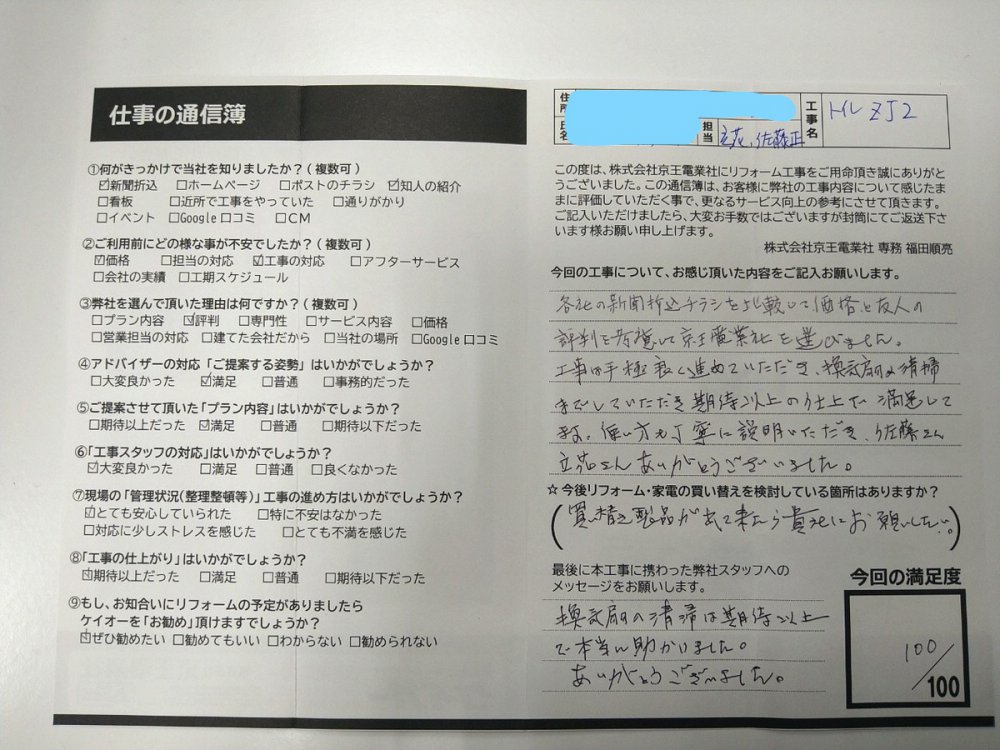 仕事の通信簿
①何がきっかけで当社を知りましたか?(複数可)
☑新聞折込 □ホームページ □ポストのチラシ ☑知人の紹介
□看板 □近所で工事をやっていた □通りがかり
□イベント □Google口コミ □CM
②ご利用前にどの様な事が不安でしたか?(複数可)
☑価格 □担当の対応 ☑工事の対応 □アフターサービス
□会社の実績 □工期スケジュール
③弊社を選んで頂いた理由は何ですか?(複数可)
□プラン内容 ☑評判 □専門性 □サービス内容 □価格
□営業担当の対応 □建てた会社だから □当社の場所 □Google口コミ
④アドバイザーの対応「ご提案する姿勢」はいかがでしょうか?
□大変良かった ☑満足 □普通 □事務的だった
⑤ご提案させて頂いた「プラン内容」はいかがでしょうか?
□期待以上だった ☑満足 □普通 □期待以下だった
⑥「工事スタッフの対応」はいかがでしょうか?
☑大変良かった □満足 □普通 □良くなかった
⑦現場の「管理状況(整理整頓等)」工事の進め方はいかがでしょうか?
☑とても安心していられた □特に不安はなかった
□対応に少しストレスを感じた □とても不満を感じた
⑧「工事の仕上がり」はいかがでしょうか?
☑期待以上だった □満足 □普通 □期待以下だった
⑨もし、お知合いにリフォームの予定がありましたら
ケイオーを「お勧め」頂けますでしょうか?
☑ぜひ勧めたい □勧めてもいい □わからない □勧められない
住所
氏名
担当
立花、佐藤正
工事名
トイレ ZJ2
この度は、株式会社京王電業社にリフォーム工事をご用命頂き誠にありがと
うございました。この通信簿は、お客様に弊社の工事内容について感じたま
まに評価していただく事で、更なるサービス向上の参考にさせて頂きます。
ご記入いただけましたら、大変お手数ではございますが封筒にてご返送下さ
います様お願い申し上げます。
株式会社京王電業社 専務 福田順亮
今回の工事について、お感じ頂いた内容をご記入お願いします。
各社の新聞折込チラシを比較して価格と友人の
評判を考慮して京王電業社を選びました。
工事は手極良く進めていただき、換気扇の清掃
までしていただき期待以上の仕上で満足して
ます。使い方も丁寧に説明いただき、佐藤さん
立花さんありがとうございました。
☆今後リフォーム・家電の買い替えを検討している箇所はありますか?
(買い替え製品があって来たら貴社にお願いしたい。)
最後に本工事に携わった弊社スタッフへの
メッセージをお願いします。
換気扇の清掃は期待以上
で本当に助かりました。
ありがとうございました。
今回の満足度
100/100